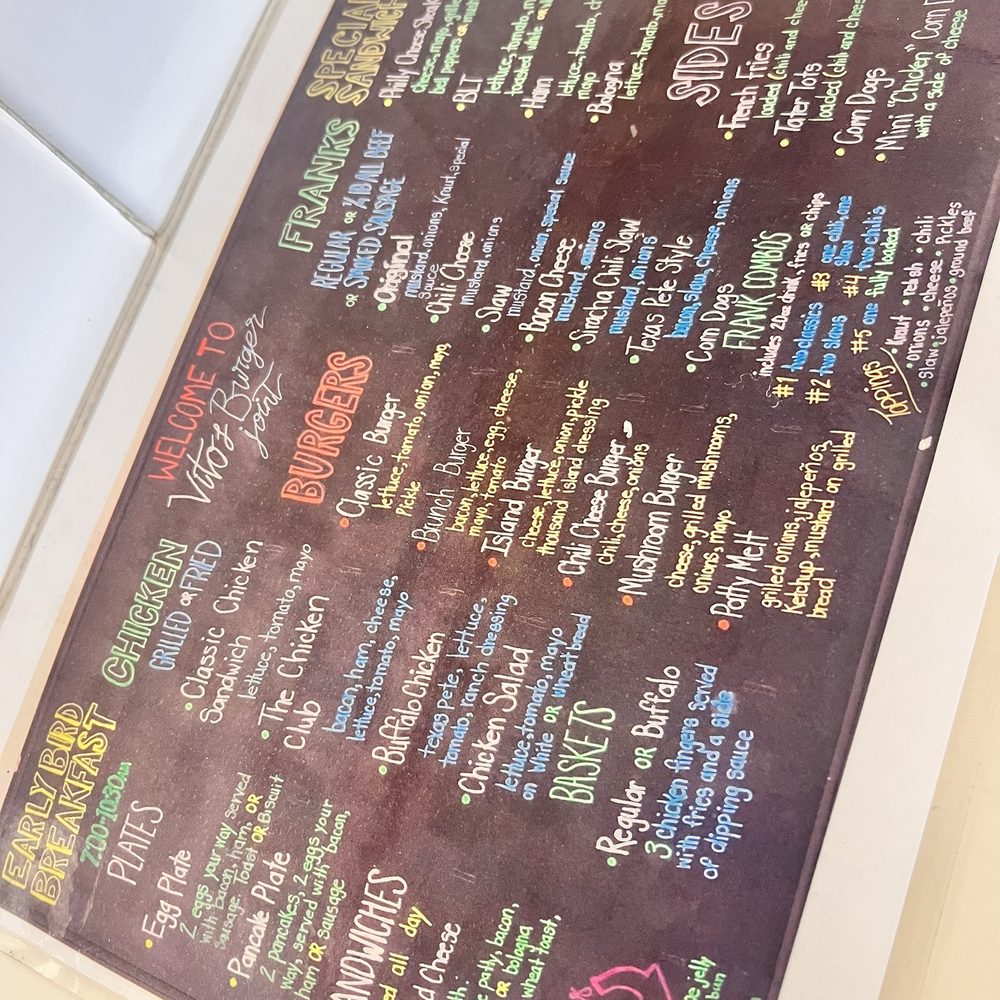 WELCOME TO
Vito's Burger
joint
EARLY BIRD
BREAKFAST
7:00-10:30am
PLATES
• Egg Plate
2 eggs your way served
with bacon, ham, OR
Sausage. Toast OR Biscuit
• Pancake Plate
2 pancakes, 2 eggs your
way, served with bacon,
ham OR sausage
ANDWICHES
all day
Cheese
patty, bacon,
OR bologna
wheat toast,
jelly
bun
CHICKEN
GRILLED OR FRIED
• Classic Chicken
Sandwich
lettuce, tomato, mayo
• The Chicken
Club
bacon, ham, cheese,
lettuce, tomato, mayo
• Buffalo Chicken
texas pete, lettuce,
tomato, ranch dressing
• Chicken Salad
lettuce, tomato, mayo
on White OR Wheat bread
BASKETS
• Regular OR Buffalo
3 chicken fingers served
with fries and a side
of dipping sauce
BURGERS
• Classic Burger
lettuce, tomato, onion, mayo,
Pickle
• Brunch Burger
bacon, lettuce, egg, cheese,
mayo, tomato
• Island Burger
cheese, lettuce, onion, pickle
thousand island dressing
• Chili Cheese Burger
chili, cheese, onions
• Mushroom Burger
cheese, grilled mushrooms,
onions, mayo
• Patty Melt
grilled onions, jalepeños,
Ketchup, mustard on grilled
bread
FRANKS
REGULAR OR ¼ LB ALL BEEF
OR SMOKED SAUSAGE
• Original
mustard, onions, Kraut, special
sauce
• Chili Cheese
mustard, onions
• Slaw
mustard, onion, special sauce
• Bacon Cheese
mustard, onions
• Siracha Chili Slaw
mustard, onions
• Texas Pete Style
bacon, slaw, cheese, onions
• Corn Dogs
FRANK COMBO'S
includes 20oz drink, fries OR chips
#1 two classics #3 one chili, one
slaw
#2 two slaws #4 two chili's
#5 one fully loaded
toppings
• Kraut • relish • chili
• onions • cheese • Pickles
• slaw • jalepeños • ground beef
SPECIAL
SANDWICH
• Philly Cheese Steak
cheese, mayo,
bell peppers
• BLT
lettuce, tomato,
toasted white
• Ham
lettuce, tomato,
mayo
• Bologna
lettuce, tomato,
SIDES
• French Fries
loaded (chili and chee
• Tater Tots
loaded (chili and chee
• Corn Dogs
• Mini "Chicken" Corn D
with a side of cheese